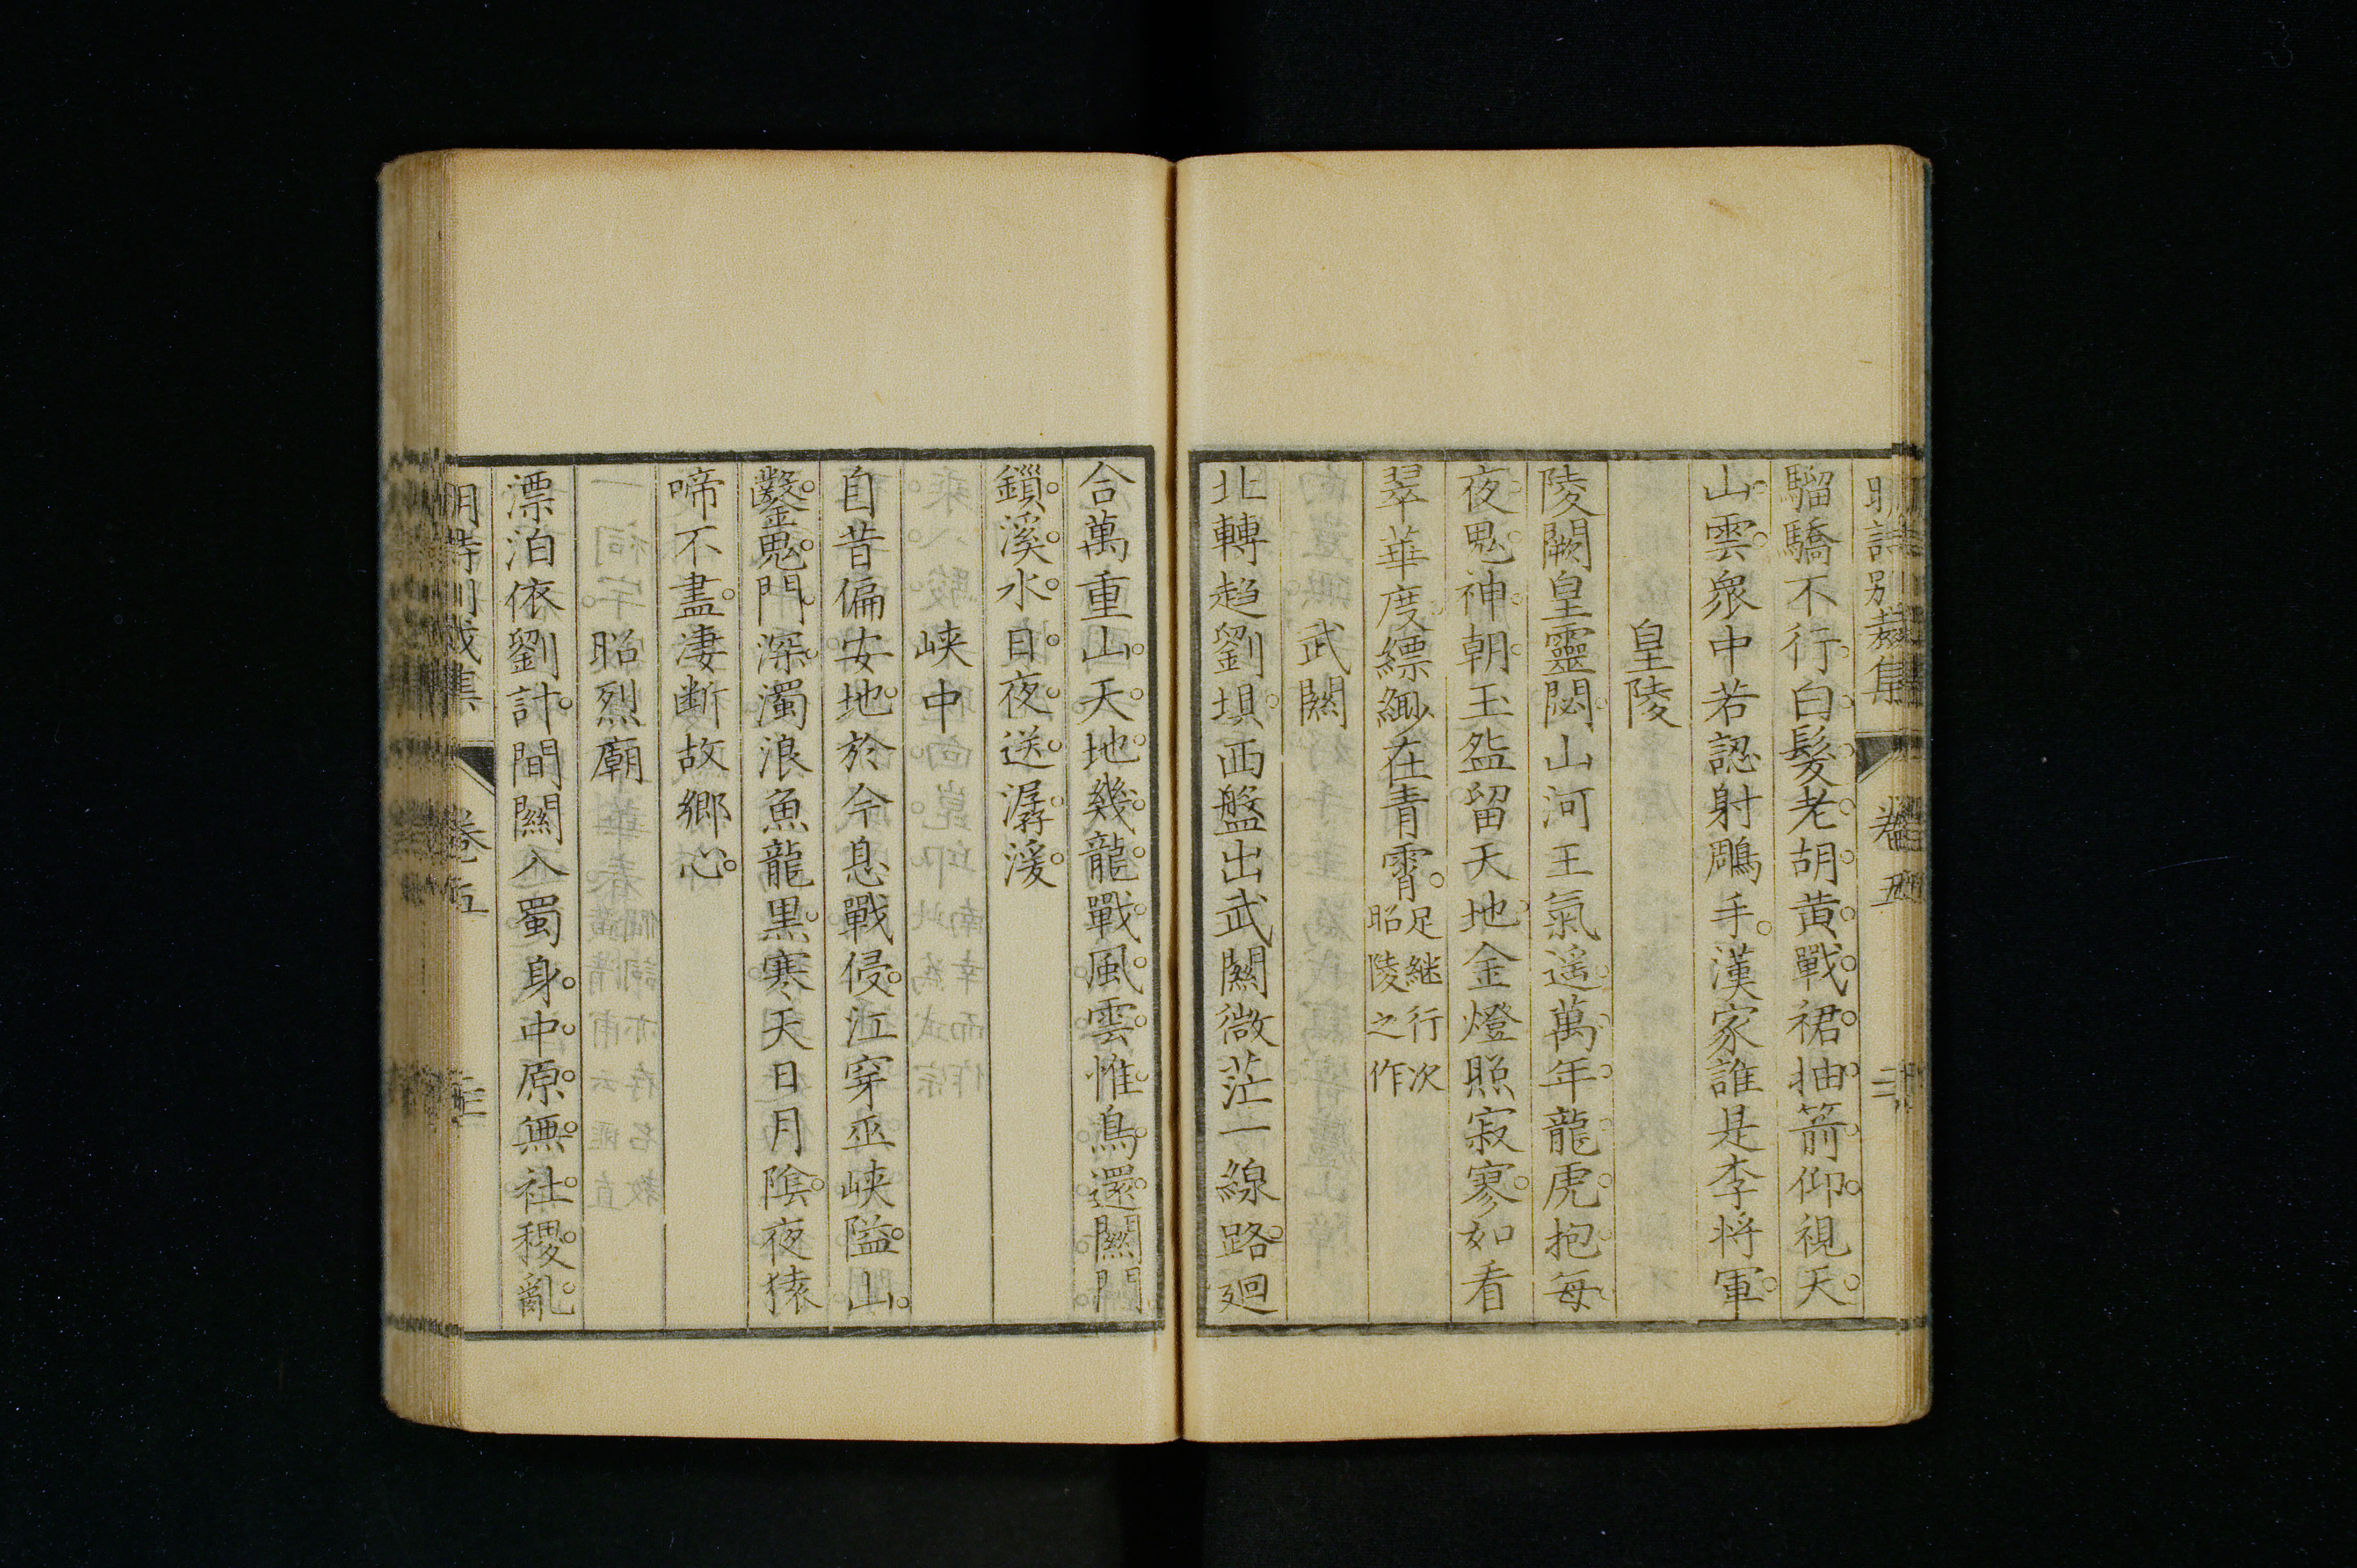 明詩別裁集 卷五
騮驕不行白髮老胡黄戰裙抽箭仰視天
山雲衆中若認射鵰手漢家誰是李將軍
皇陵
陵闕皇靈閟山河王氣遥萬年龍虎抱每
夜鬼神朝玉盌留天地金燈照寂寥如看
翠華度縹緲在青霄足継行次
昭陵之作
武関
北轉趨劉垻西盤出武関微茫一線路廻
合萬重山天地幾龍戰風雲惟鳥還関門
鎖溪水日夜送潺湲
峡中
自昔偏安地於今息戰侵江穿巫峡隘山
鑿鬼門深濁浪魚龍黒寒天日月陰夜猿
啼不盡凄断故鄉心
昭烈廟
漂泊依劉計間関入蜀身中原無社稷亂
明詩別裁集 卷五